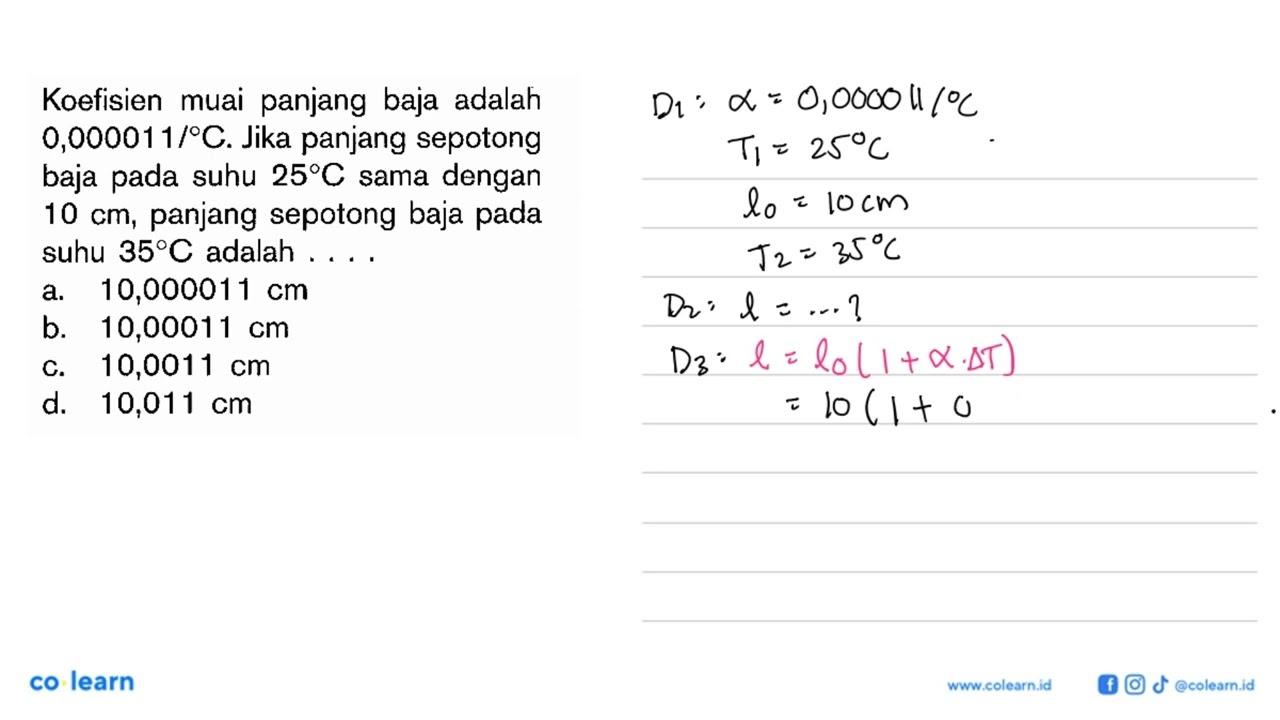 Koefisien muai panjang baja adalah
0,000011/°C. Jika panjang sepotong
baja pada suhu 25°C sama dengan
10 cm, panjang sepotong baja pada
suhu 35°C adalah . . . .
a. 10,000011 cm
b. 10,00011 cm
c. 10,0011 cm
d. 10,011 cm
D1: α = 0,000011/°C
T1 = 25°C
l0 = 10 cm
T2 = 35°C
D2: l = ...?
D3: l = l0(1 + α.ΔT)
= 10 (1 + 0
co learn
www.colearn.id
@colearn.id